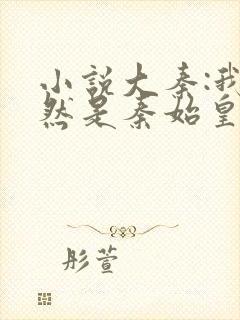 小説大秦:我
然是秦始皇
彤萱